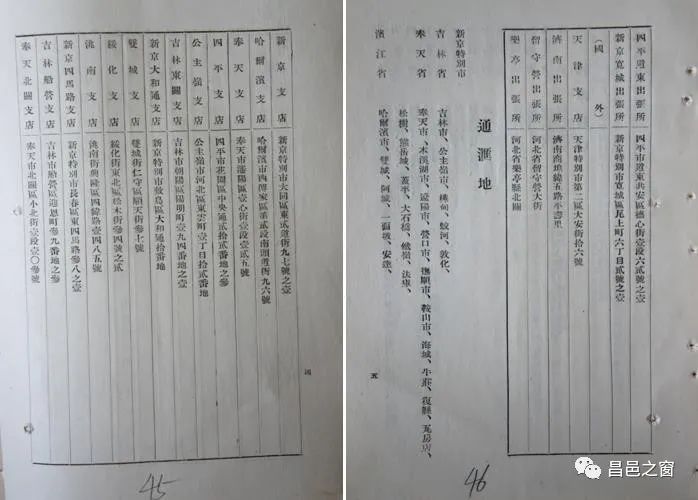 新京支店 新京特別市大同區東貳道街九七號之壹
哈爾濱支店 哈爾濱市西傅家區 貳段南頭道街九六號
奉天支店 奉天市瀋陽區壹心街壹段壹貳五號
四平支店 四平市花園區中央通貳拾貳番地
公主嶺支店 公主嶺市河北區東雲町壹丁目拾貳番地
吉林東關支店 吉林市朝陽區陽明町壹九四番地之壹
新京大和通支店 新京特別市敷島區大和通拾番地
雙城支店 雙城街仁守區順天街參十號
綏化支店 綏化街東北區松木街參四號之貳
洮南支店 洮南街興隆區四緯路壹四八五號
新京四馬路支店 新京特別市長春區東四馬路參八之壹
吉林船營支店 吉林市船營區迎恩町參九番地之參
奉天北關支店 奉天市北關區小北街壹段壹〇參號
四
45
四平道東出張所 四平市道東共安區德心街壹段六貳號之壹
新京寬城出張所 新京特別市寬城區瓦上町六丁目貳號之壹
（國外）
天津支店 天津特別市第二區大安街拾六號
濟南出張所 濟南商埠緯五路平壽里
留守營出張所 河北省留守營大街
樂亭出張所 河北省樂亭縣北關
通滙地
新京特別市
吉林省 吉林市、公主嶺市、樺甸、蛟河、敦化、
奉天省 奉天市、本溪湖市、遼陽市、營口市、撫順市、鞍山市、海城、牛莊、復縣、瓦房店、
松樹、熊岳城、蓋平、大石橋、鐵嶺、法庫、
濱江省 哈爾濱市、雙城、阿城、一面坡、安達、
五
46
昌邑之窗